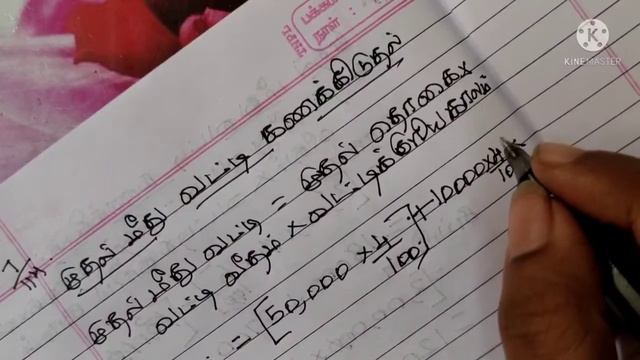 பக்கம்
நாள் :
KINEMASTER
முதல் மீது வட்டி கணக்கிடுதல்
முதல் மீது வட்டி = முதல் தொகை x
வட்டி வீதம் x வட்டிக்குரிய காலம்
= [50,000 x 4/100] + 10000 x 4/100